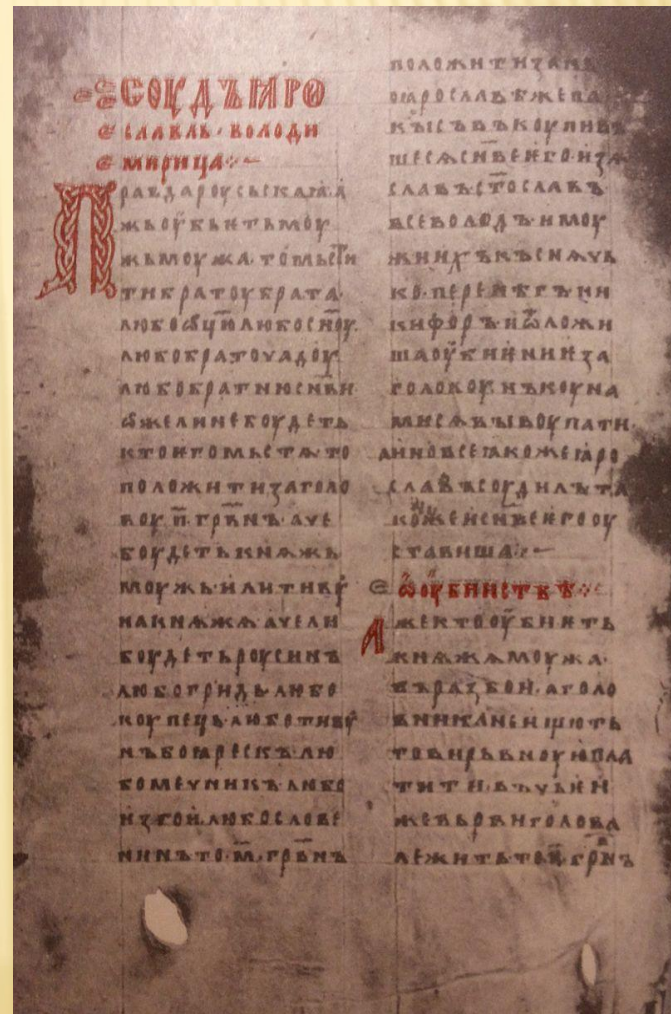 СОУДЪ ꙖРО
СЛАВЛЬ · ВОЛОДИ
МИРИЦА
Правда роусьскаꙗ · а
жь оубьить моу
жь моужа · то мьсти
ти братоу брата ·
любо ѡц҃ю любо сн҃оу ·
любо братоучадоу ·
любо братню сн҃ви
ѡже ли не боудеть
кто ѥго мьстѧ то
положити за голо
воу · п҃ · грвн҃ъ · аче
боудеть кнѧжь
моужь · или тиву
на кнѧжѧ аче ли
боудеть роусинъ
любо гридь любо
коупець · любо тиву
нъ боꙗрескъ лю
бо мечникъ любо
изгои · любо слове
нинъ то · м҃ · грвн҃ъ
положити за нь
ꙗрославѣ же па
кы съвъкоупивъ
шесѧ сн҃ве ѥго · изѧ
славъ ст҃ославъ ·
всеволодъ · и моу
жи ихъ къснѧчь
ко · перенѣгъ ни
кифоръ и ѿложи
ша оубиѥниѥ за
голоѵ · нъ коуна
ми сѧ выкоупати ·
а ино все ꙗкоже ꙗро
славъ соудилъ та
коже и сн҃ве ѥго оу
ставиша
ѡ оубииствѣ
Аже кто оубиить
кнѧжѧ моужа ·
въ разбои · а голо
вника не ищють
то вирьвноую пла
тити · въ чьѥи
же вьрви голова
лежить то п҃ · грвн҃ъ